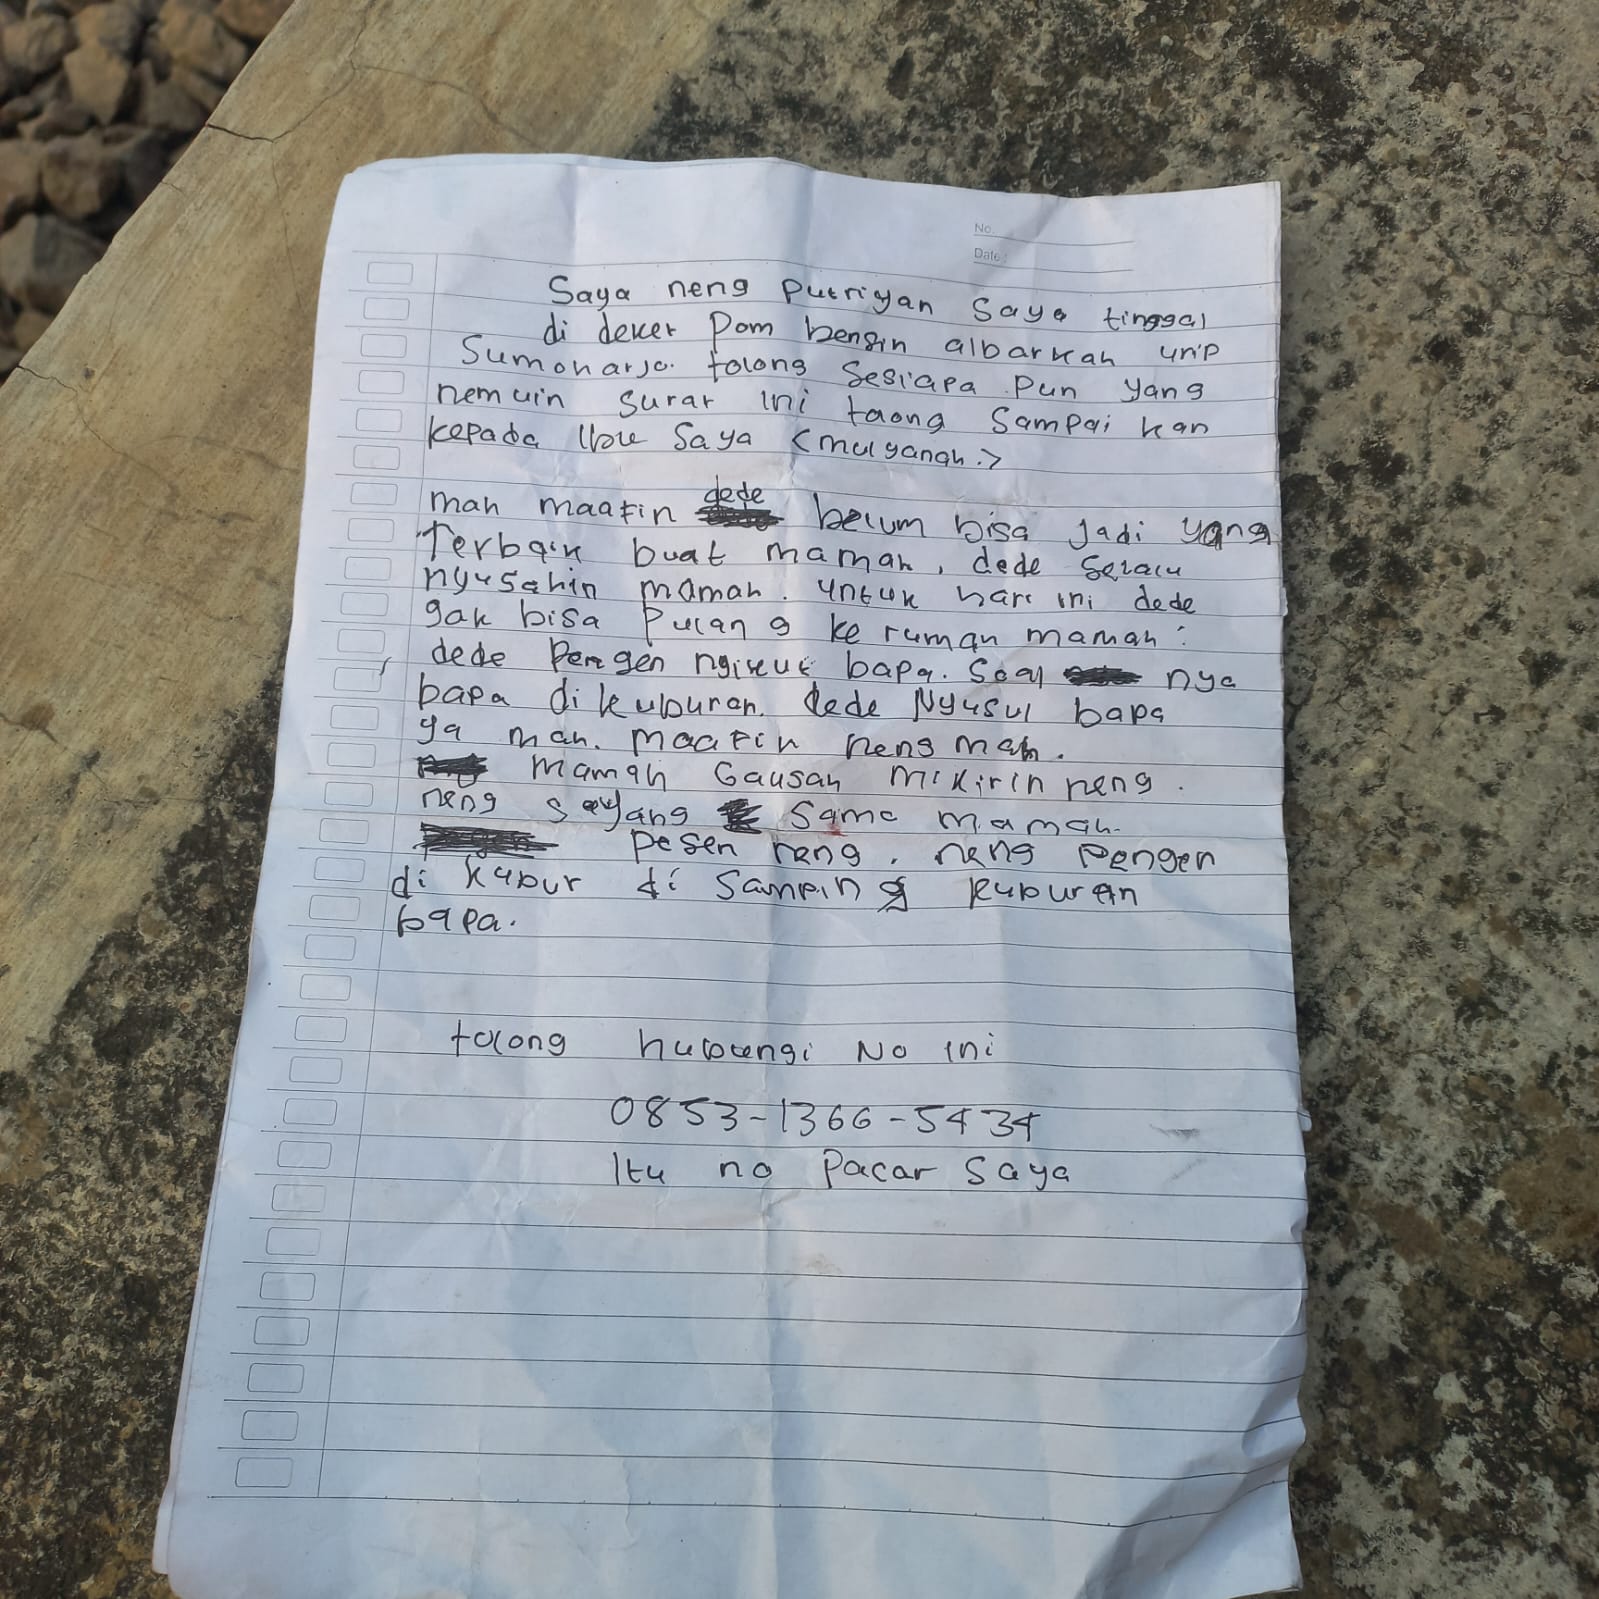 No.
Date:
Saya neng putriyan saya tinggal
di deket Pom bensin albarkah urip
Sumoharjo. tolong Sesiapa pun yang
nemuin surat ini taong Sampai kan
kepada Ibu Saya <mulyanah.>
mah maafin dede belum bisa jadi yang
Terbaik buat mamah, dede selalu
nyusahin mamah. untuk hari ini dede
gak bisa Pulang ke rumah mamah.
dede Pengen ngikut bapa. Soal nya
bapa di kuburan. dede Nyusul bapa
ya mah. maafin neng mah.
mamah Gausah mikirin neng.
neng sayang Sama mamah.
pesen neng, neng pengen
di kubur di Samping kuburan
bapa.
tolong hubungi No ini
0853-1366-5434
Itu no Pacar Saya